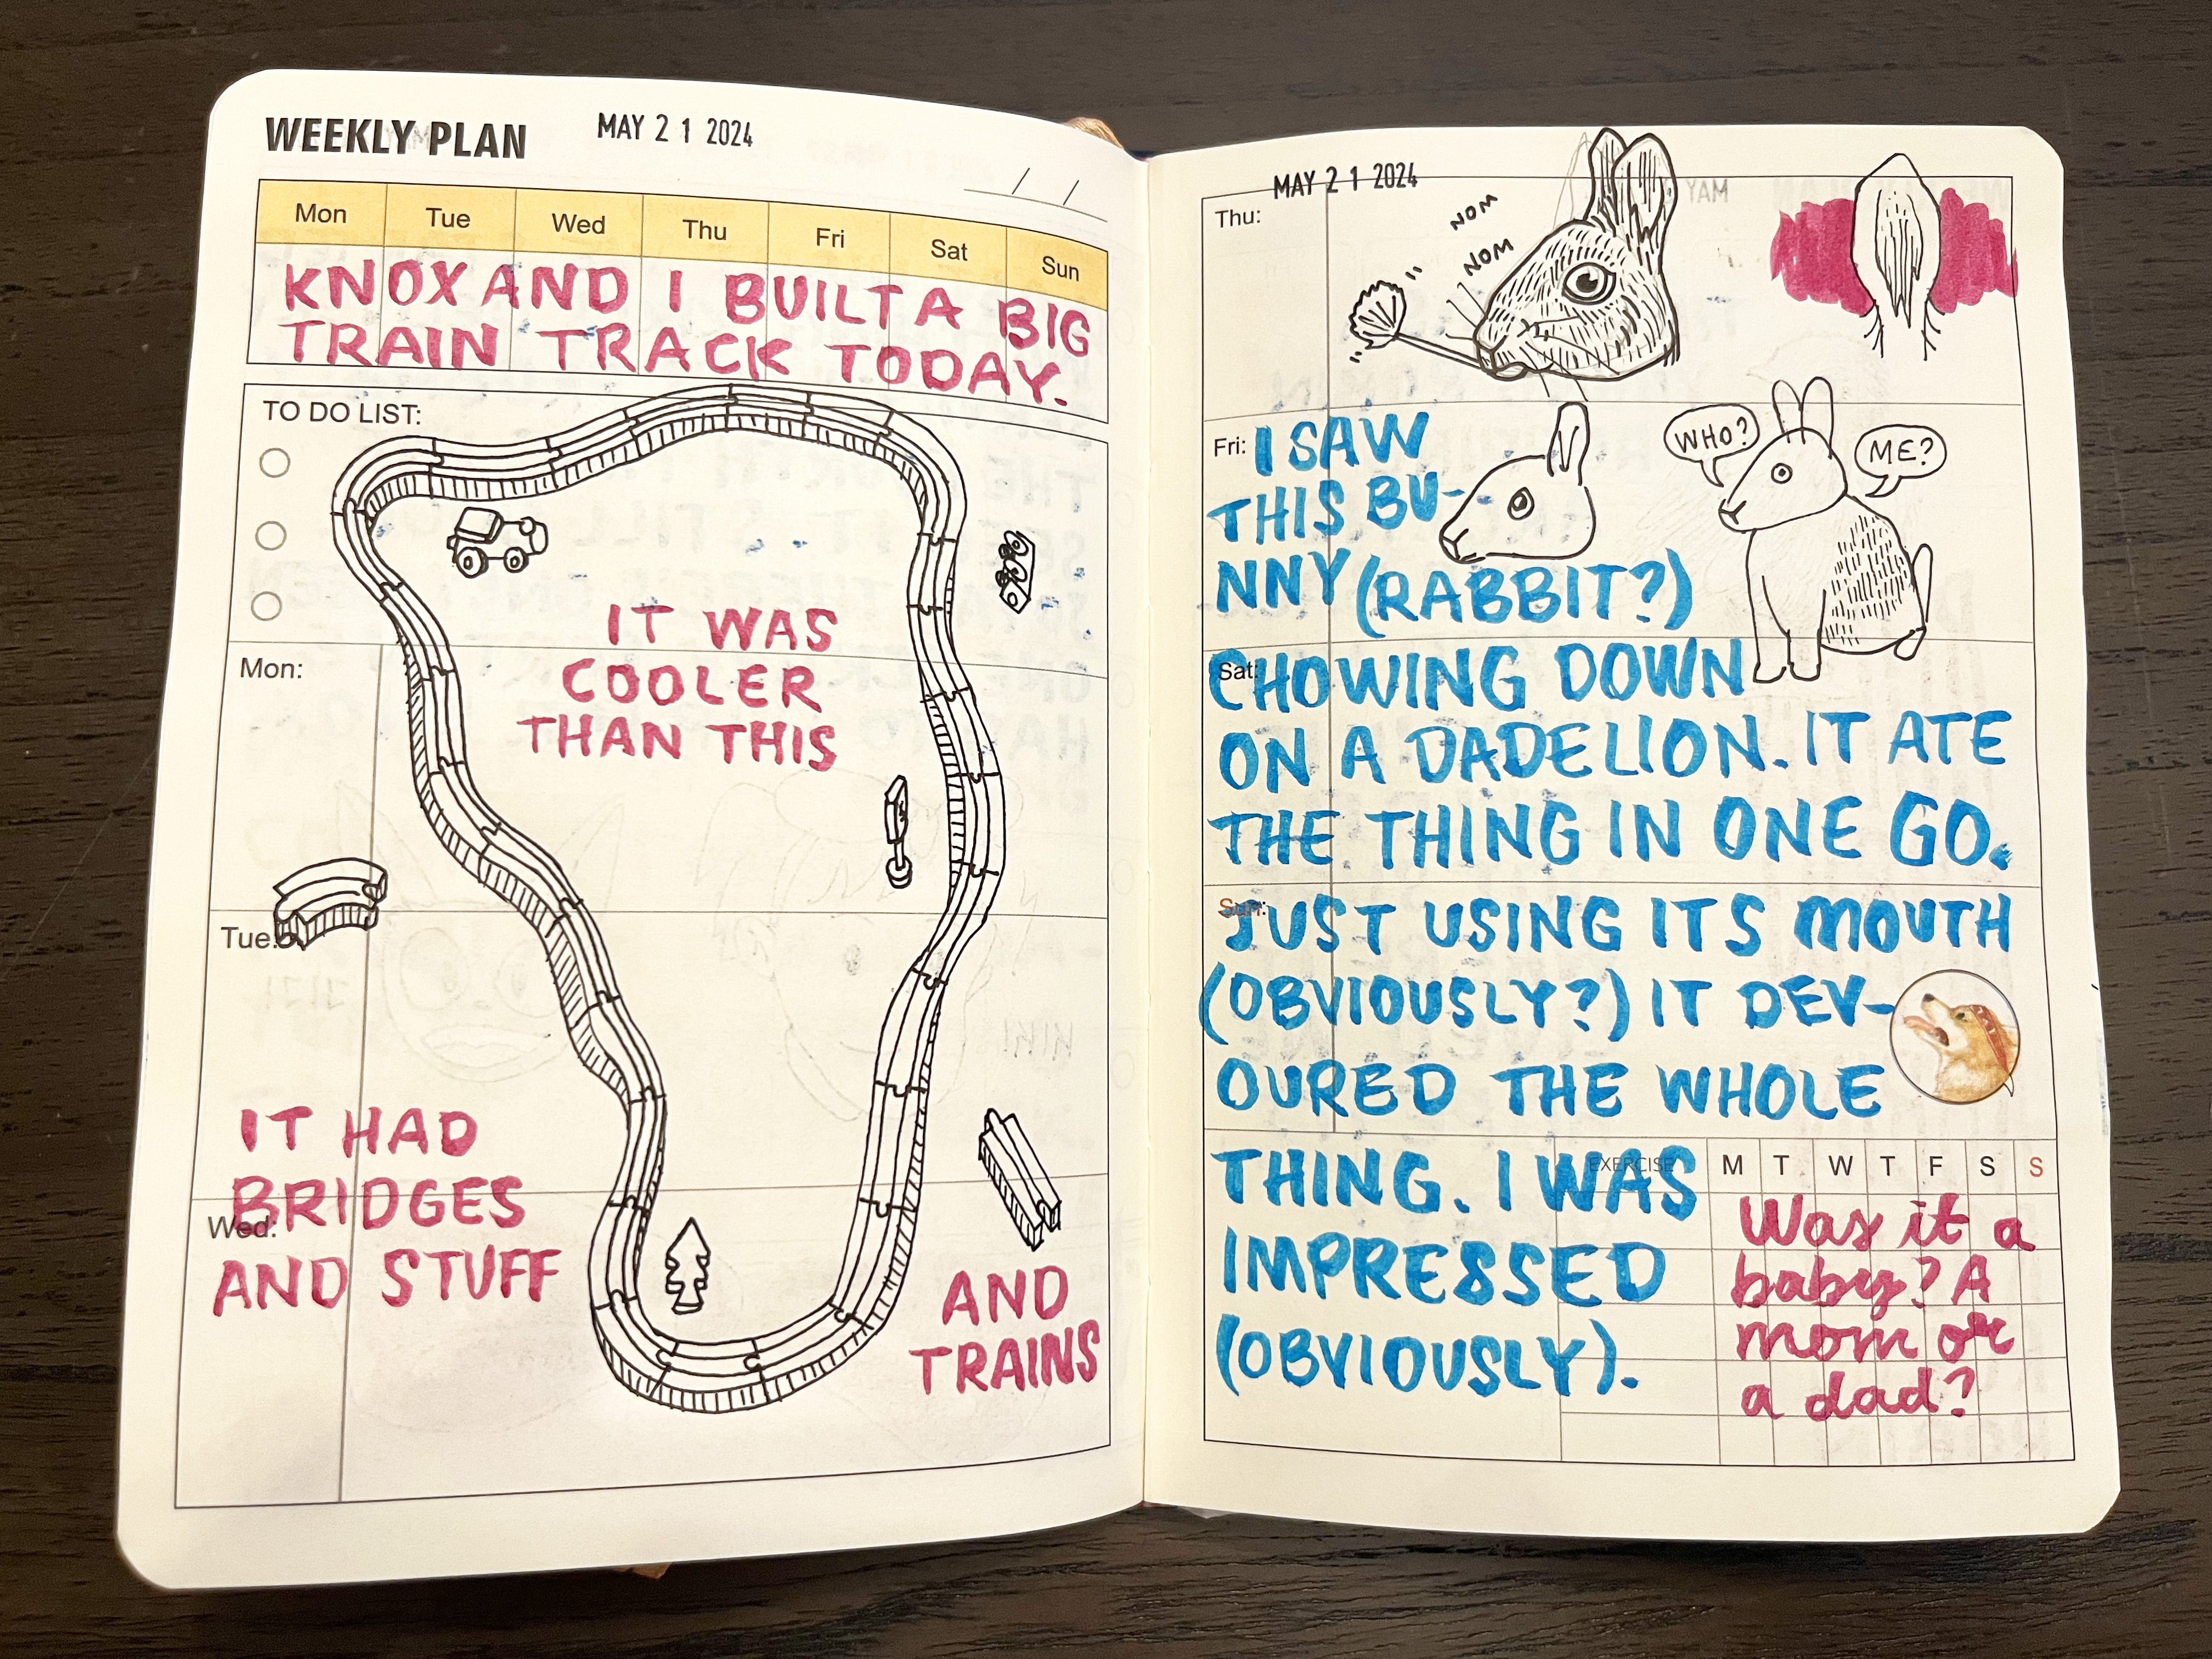 WEEKLY PLAN
MAY 2 1 2024
/ /
Mon Tue Wed Thu Fri Sat Sun
KNOX AND I BUILT A BIG
TRAIN TRACK TODAY.
TO DO LIST:
IT WAS
COOLER
THAN THIS
Mon:
Tue:
IT HAD
BRIDGES
Wed:
AND STUFF
AND
TRAINS
MAY 2 1 2024
Thu:
NOM
NOM
WHO?
ME?
Fri:
I SAW
THIS BU-
NNY (RABBIT?)
Sat:
CHOWING DOWN
ON A DADELION. IT ATE
THE THING IN ONE GO.
Sun:
JUST USING ITS MOUTH
(OBVIOUSLY?) IT DEV-
OURED THE WHOLE
THING. I WAS
IMPRESSED
(OBVIOUSLY).
EXERCISE M T W T F S S
Was it a
baby? A
mom or
a dad?